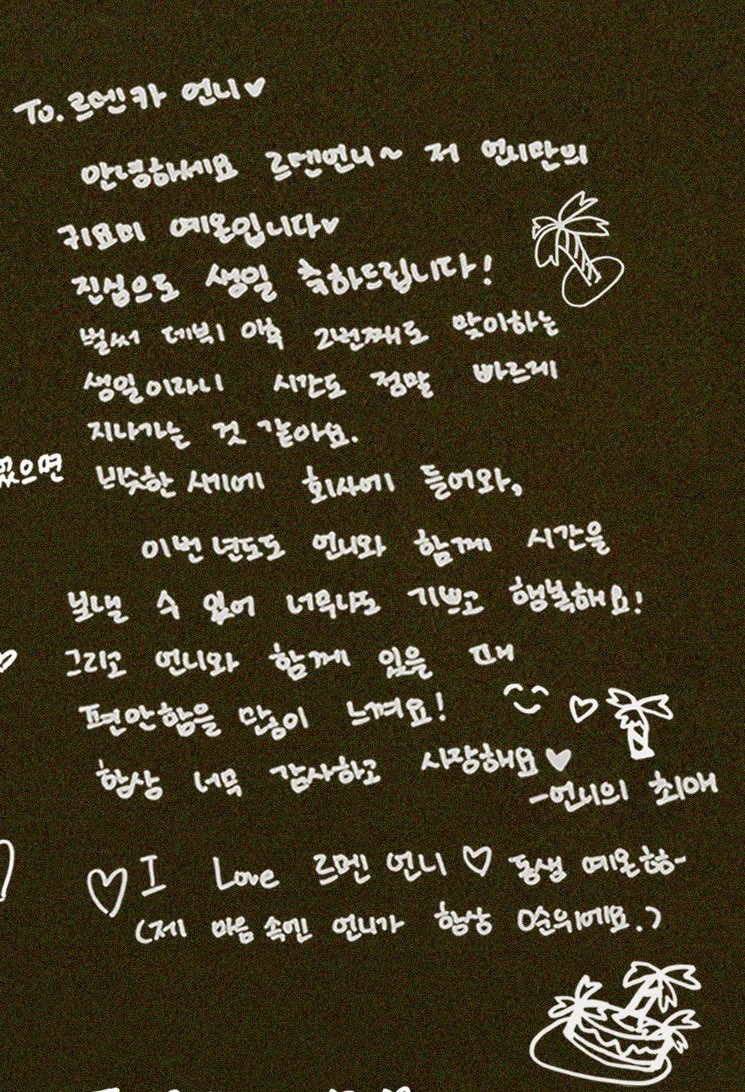 To. 르멘카 언니♥
안녕하세요 르멘언니~ 저 언니만의
귀요미 예온입니다♥
진심으로 생일 축하드립니다!
벌써 데뷔 이후 2번째로 맞이하는
생일이라니 시간도 정말 빠르게
지나가는 것 같아요.
없으면
비슷한 시기에 회사에 들어와,
이번 년도도 언니와 함께 시간을
보낼 수 있어 너무나도 기쁘고 행복해요!
그리고 언니와 함께 있을 때
편안함을 많이 느껴요!
항상 너무 감사하고 사랑해요♥
-언니의 최애
♡I Love 르멘 언니♡ 동생 예온-
(제 마음 속엔 언니가 항상 0순위에요.)